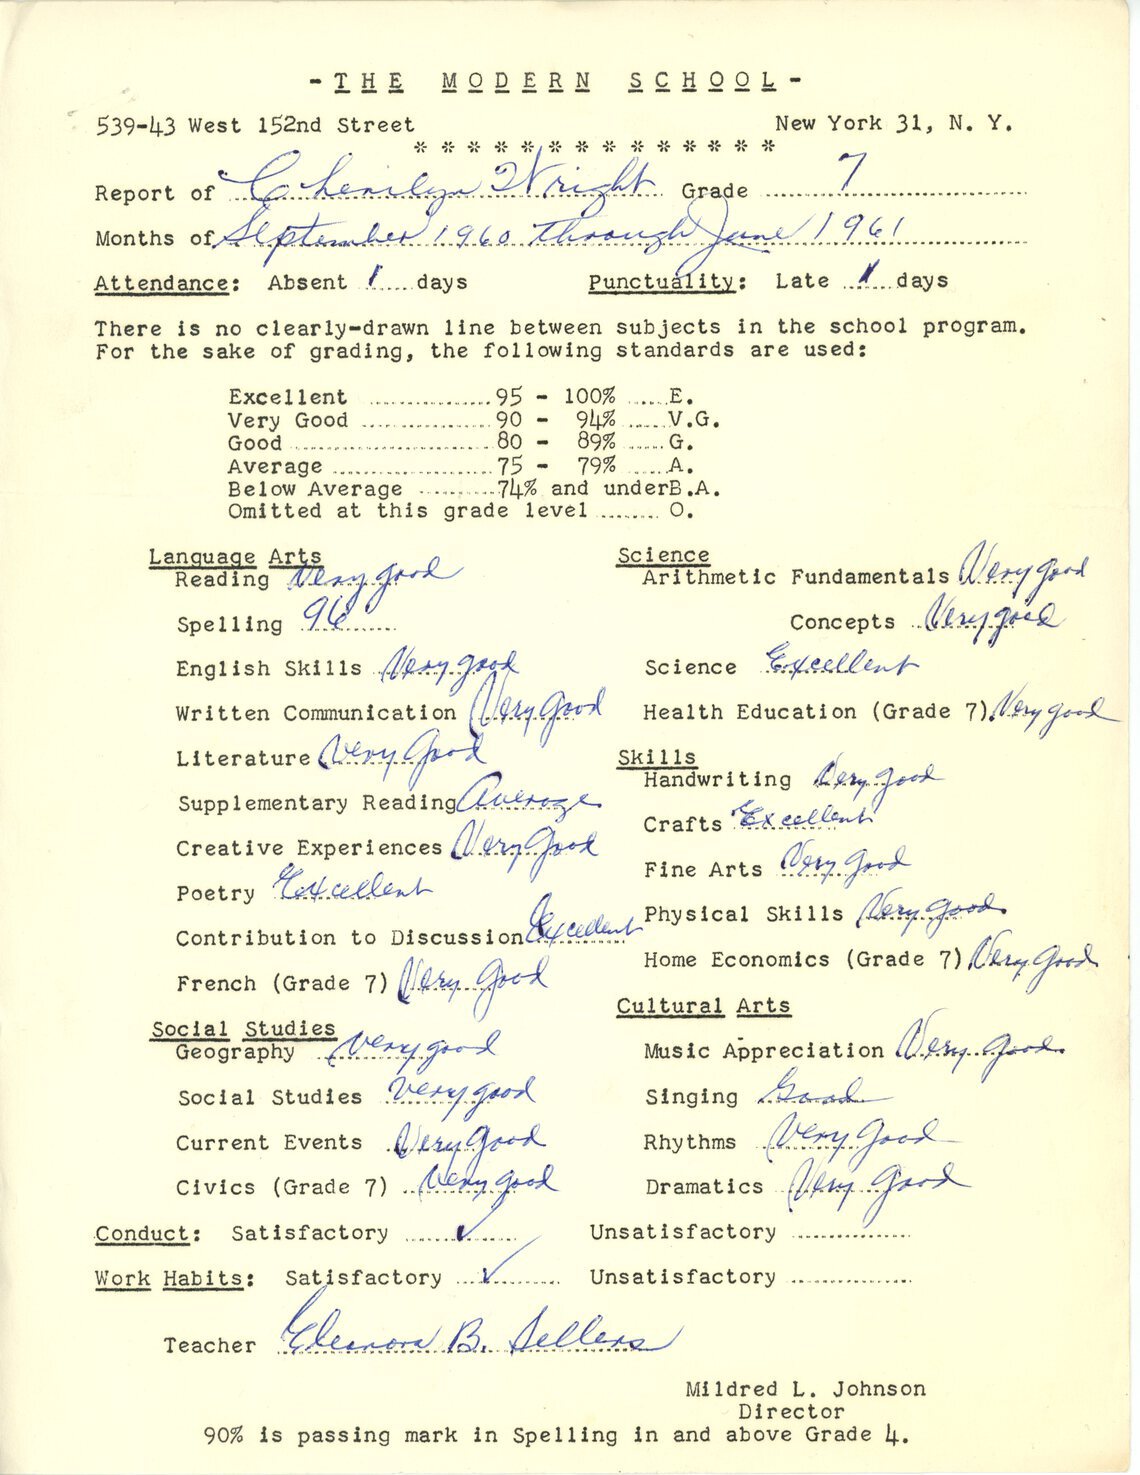 - T H E M O D E R N S C H O O L -
539-43 West 152nd Street New York 31, N. Y.
* * * * * * * * * * * * * *
Report of Cherilyn Wright Grade 7
Months of September 1960 through June 1961
Attendance: Absent 1 days Punctuality: Late 1 days
There is no clearly-drawn line between subjects in the school program.
For the sake of grading, the following standards are used:
Excellent ................95 - 100% ......E.
Very Good ................90 - 94% ......V.G.
Good ................80 - 89% ......G.
Average ................75 - 79% ......A.
Below Average ..........74% and underB.A.
Omitted at this grade level ........ O.
Language Arts
Reading Very good
Spelling 96
English Skills Very good
Written Communication Very Good
Literature Very Good
Supplementary Reading Average
Creative Experiences Very Good
Poetry Excellent
Contribution to Discussion Excellent
French (Grade 7) Very Good
Social Studies
Geography Very good
Social Studies Very good
Current Events Very Good
Civics (Grade 7) Very good
Science
Arithmetic Fundamentals Very good
Concepts Very good
Science Excellent
Health Education (Grade 7) Very good
Skills
Handwriting Very good
Crafts Excellent
Fine Arts Very Good
Physical Skills Very Good
Home Economics (Grade 7) Very Good
Cultural Arts
Music Appreciation Very Good
Singing Good
Rhythms Very Good
Dramatics Very Good
Conduct: Satisfactory ✓ Unsatisfactory ..............
Work Habits: Satisfactory ✓ Unsatisfactory ..............
Teacher Eleanora B. Sellers
Mildred L. Johnson
Director
90% is passing mark in Spelling in and above Grade 4.